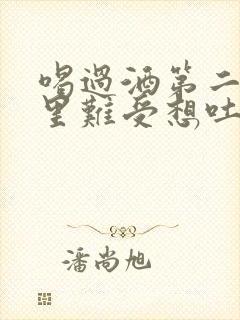 喝過酒第二
里難受想吐
潘尚旭